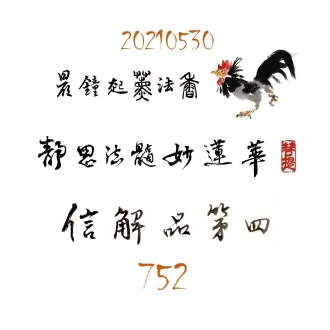 20210530
晨鐘起薰法香
靜思法髓妙蓮華
信解品第四
752